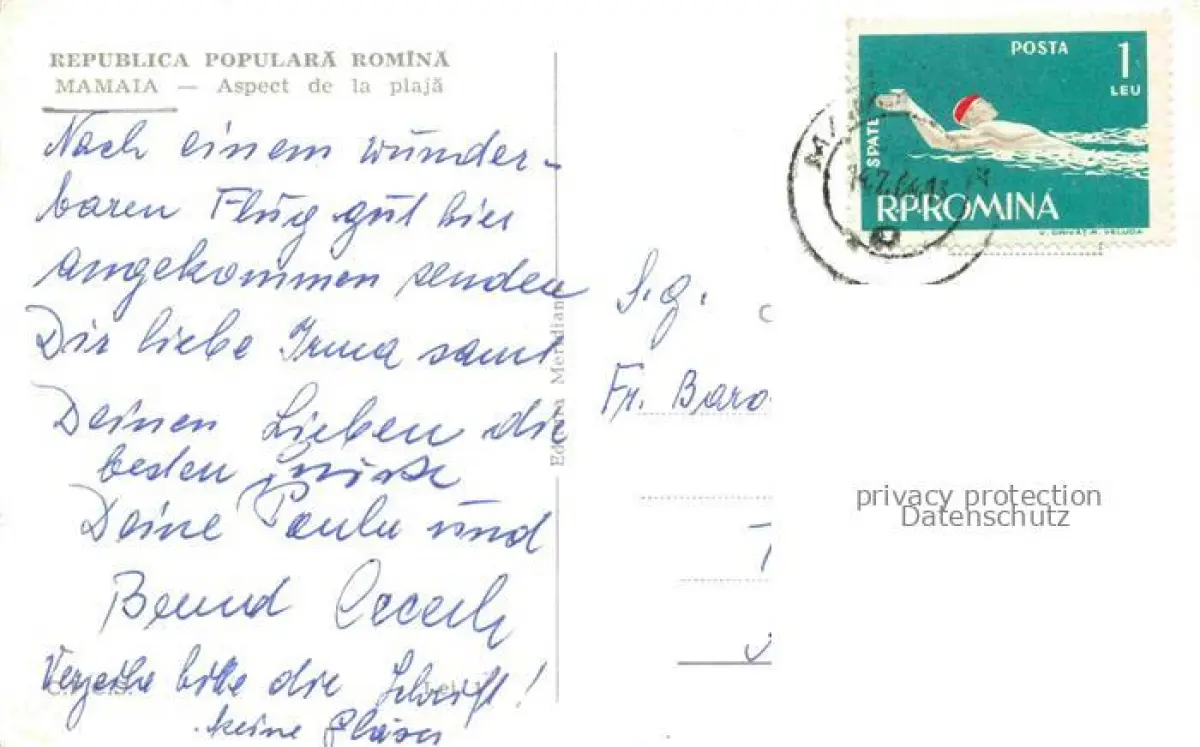 REPUBLICA POPULARĂ ROMÎNĂ
MAMAIA — Aspect de la plajă
Nach einem wunder-
baren Flug gut hier
angekommen senden
Dir liebe Irma samt
Deinen Lieben die
besten Grüße
Deine Paula und
Bernd
Verzeihe bitte die Schrift!
keine Gläser
Editura Meridiane
POSTA 1
LEU
SPATE
R.P.ROMINA
S.g.
Fr. Baro
privacy protection
Datenschutz